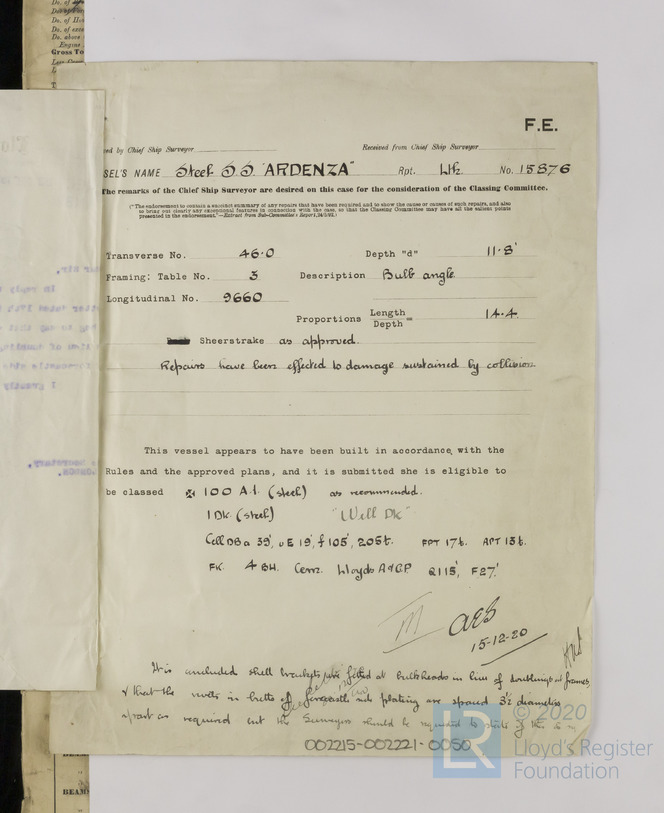 F.E.
ed by Chief Ship Surveyor
Received from Chief Ship Surveyor
SEL'S NAME Steel SS "ARDENZA" Rpt. Lth. No. 15876
The remarks of the Chief Ship Surveyor are desired on this case for the consideration of the Classing Committee.
("The endorsement to contain a succinct summary of any repairs that have been required and to show the cause or causes of such repairs, and also
to bring out clearly any exceptional features in connection with the case, so that the Classing Committee may have all the salient points
presented in the endorsement."—Extract from Sub-Committee's Report,
Transverse No. 46.0 Depth "d" 11.8'
Framing: Table No. 3 Description Bulb angle
Longitudinal No. 9660
Proportions Length/Depth = 14.4.
Sheerstrake as approved.
Repairs have been effected to damage sustained by collision.
This vessel appears to have been built in accordance with the
Rules and the approved plans, and it is submitted she is eligible to
be classed ✠ 100 A.1. (steel) as recommended.
1 Dk (steel) "Well Dk"
Cell DB a 39', u E 19', f 105', 205t. FPT 17t. APT 13t.
FK. 4 BH. Cem. Lloyds A & CP. Q 115', F 27'
15-12-20
It is concluded shell brackets are fitted at bulkheads in lieu of doublings at frames,
& that the rivets in butts of forecastle side plating are spaced 3½ diameters
apart as required but the Surveyors should be requested to state if this is so
002215-002221-0050
© 2020
LR
Lloyd's Register
Foundation